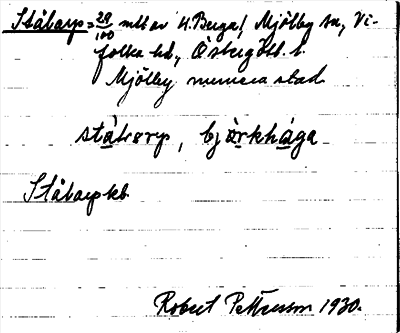 Ståtarp = 28/100 mtl av U. Berga, Mjölby sn, Vi-
folka hd, Östergötl. l.
Mjölby numera stad.
ståtarp, björkhåga
Ståtarp kb
Robert Pettersson 1930.